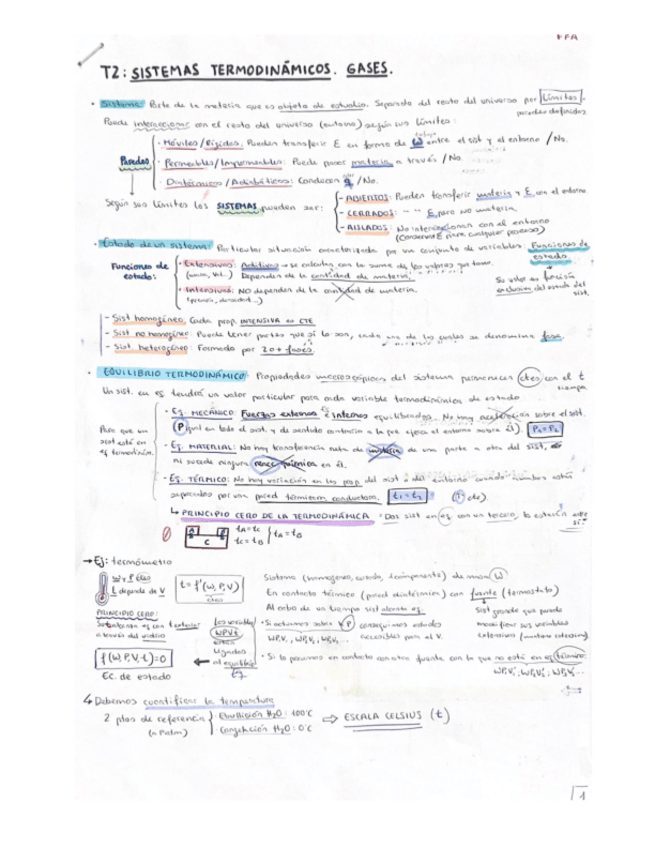 FFA
T2: SISTEMAS TERMODINÁMICOS. GASES.
· Sistema: Parte de la materia que es objeto de estudio. Separado del resto del universo por Límites.
paredes definidas
Puede interaccionar con el resto del universo (entorno) según sus límites:
Paredes
· Móviles/Rígidas: Pueden transferir E en forma de W entre el sist y el entorno / No.
trabajo
· Permeables/Impermeables: Puede pasar materia a través / No.
· Diatérmicas/Adiabáticas: Conducen q / No.
calor
Según sus límites los SISTEMAS pueden ser:
- ABIERTOS: Pueden transferir materia y E con el entorno
- CERRADOS: " " E pero no materia.
- AISLADOS: No interaccionan con el entorno
(Conservan E para cualquier proceso)
· Estado de un sistema: Particular situación caracterizada por un conjunto de variables: Funciones de estado.
Funciones de estado:
· Extensivas: Aditivas → se calculan con la suma de los valores que toma.
(masa, Vol...) Dependen de la cantidad de materia.
· Intensivas: NO dependen de la cantidad de materia.
(presión, densidad...)
Su valor es función
exclusiva del estado del
sist.
- Sist homogéneo: Cada prop. INTENSIVA es CTE
- Sist no homogéneo: Puede tener partes que sí lo son, cada una de las cuales se denomina fase.
- Sist. heterogéneo: Formado por 2 o + fases.
· EQUILIBRIO TERMODINÁMICO: Propiedades macroscópicas del sistema permanecen ctes con el t
tiempo
Un sist. en eq. tendrá un valor particular para cada variable termodinámica de estado
Para que un
sist esté en
eq termodinám.
· Eq. MECÁNICO: Fuerzas externas e internas equilibradas. No hay aceleración sobre el sist.
(P igual en todo el sist. y de sentido contrario a la que ejerce el entorno sobre él) P₁=P₂
· Eq. MATERIAL: No hay transferencia neta de materia de una parte a otra del sist,
ni sucede ninguna reacc química en él.
· Eq. TÉRMICO: No hay variación en las prop del sist o del entorno cuando ambos están
separados por una pared térmicam conductora. t₁=t₂ (T cte).
↳ PRINCIPIO CERO DE LA TERMODINÁMICA: "Dos sist en eq con un tercero, lo estarán entre sí"
A B
C
tA=tC
tC=tB
tA=tB
→ Ej: termómetro
W y P ctes
L depende de V
t=f'(W,P,V)
PRINCIPIO CERO:
a través del vidrio
f(W,P,V,t)=0
Ec. de estado
las variables
WPVt
están
ligadas
al equilibrio
Sistema (homogéneo, cerrado, 1 componente) de masa W
En contacto térmico (pared diatérmica) con fuente (termostato)
Al cabo de un tiempo sist alcanza eq.
· Si actuamos sobre P conseguimos estados
accesibles para el V.
Sist grande que puede
modificar sus variables
· Si lo ponemos en contacto con otra fuente con la que no está en eq térmico:
↳ Debemos cuantificar la temperatura
2 ptos de referencia
(a Patm)
Ebullición H₂O: 100°C
Congelación H₂O: 0°C
⇒ ESCALA CELSIUS (t)
1